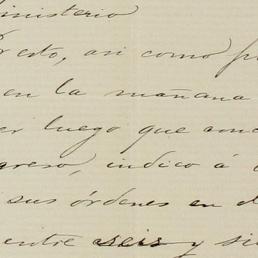 inisterio
esto, así como p
en la mañana
er luego que con
greso, indico á
sus órdenes en d
entre seis y si